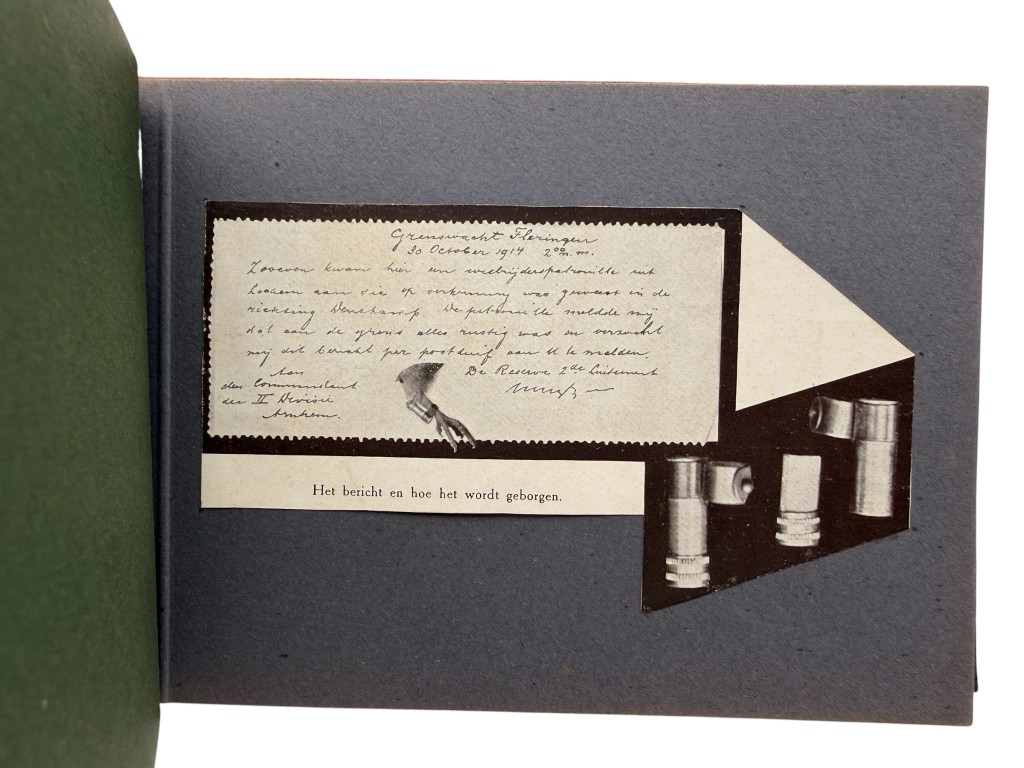 Grenswacht Fleringen
30 October 1914 2⁰⁰ n.m.
Zooeven kwam hier een wielrijderspatrouille uit
Lochem aan die op verkenning was geweest in de
richting Denekamp. De patrouille meldde mij
dat aan de grens alles rustig was en verzocht
mij dit bericht per postduif aan U te melden.
Aan
den Commandant
der II Divisie
Arnhem.
De Reserve 2de Luitenant
Het bericht en hoe het wordt geborgen.